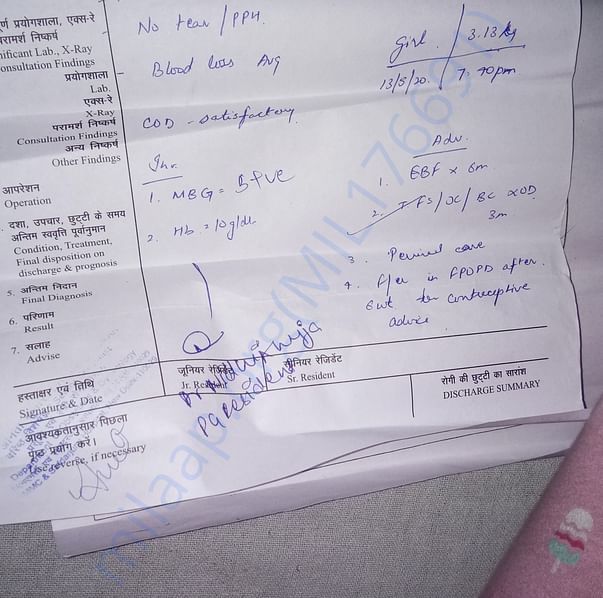 र्ण प्रयोगशाला, एक्स-रे
रामर्श निष्कर्ष
nificant Lab., X-Ray
onsultation Findings
प्रयोगशाला
Lab.
एक्स-रे
X-Ray
परामर्श निष्कर्ष
Consultation Findings
अन्य निष्कर्ष
Other Findings
No tear / PPH
Blood loss Avg
Girl / 3.13 kg
13/5/20. 7:
COD - satisfactory
Inv.
1. MBG = B+ve
2. Hb = 10 g/dl
Adv.
1. EBF x 6m
2. FS / OC / BC x OD
3m
3. Perineal care
4. F/u in FPOPD after
6wk for contraceptive
advice
आपरेशन
Operation
दशा, उपचार, छुट्टी के समय
अन्तिम स्ववृत्ति पूर्वानुमान
Condition, Treatment,
Final disposition on
discharge & prognosis
5. अन्तिम निदान
Final Diagnosis
6. परिणाम
Result
7. सलाह
Advise
हस्ताक्षर एवं तिथि
Signature & Date
जूनियर रेजिडेंट
Jr. Resident
सीनियर रेजिडेंट
Sr. Resident
रोगी की छुट्टी का सारांश
DISCHARGE SUMMARY
आवश्यकतानुसार पिछला
पृष्ठ प्रयोग करें।
Use reverse, if necessary